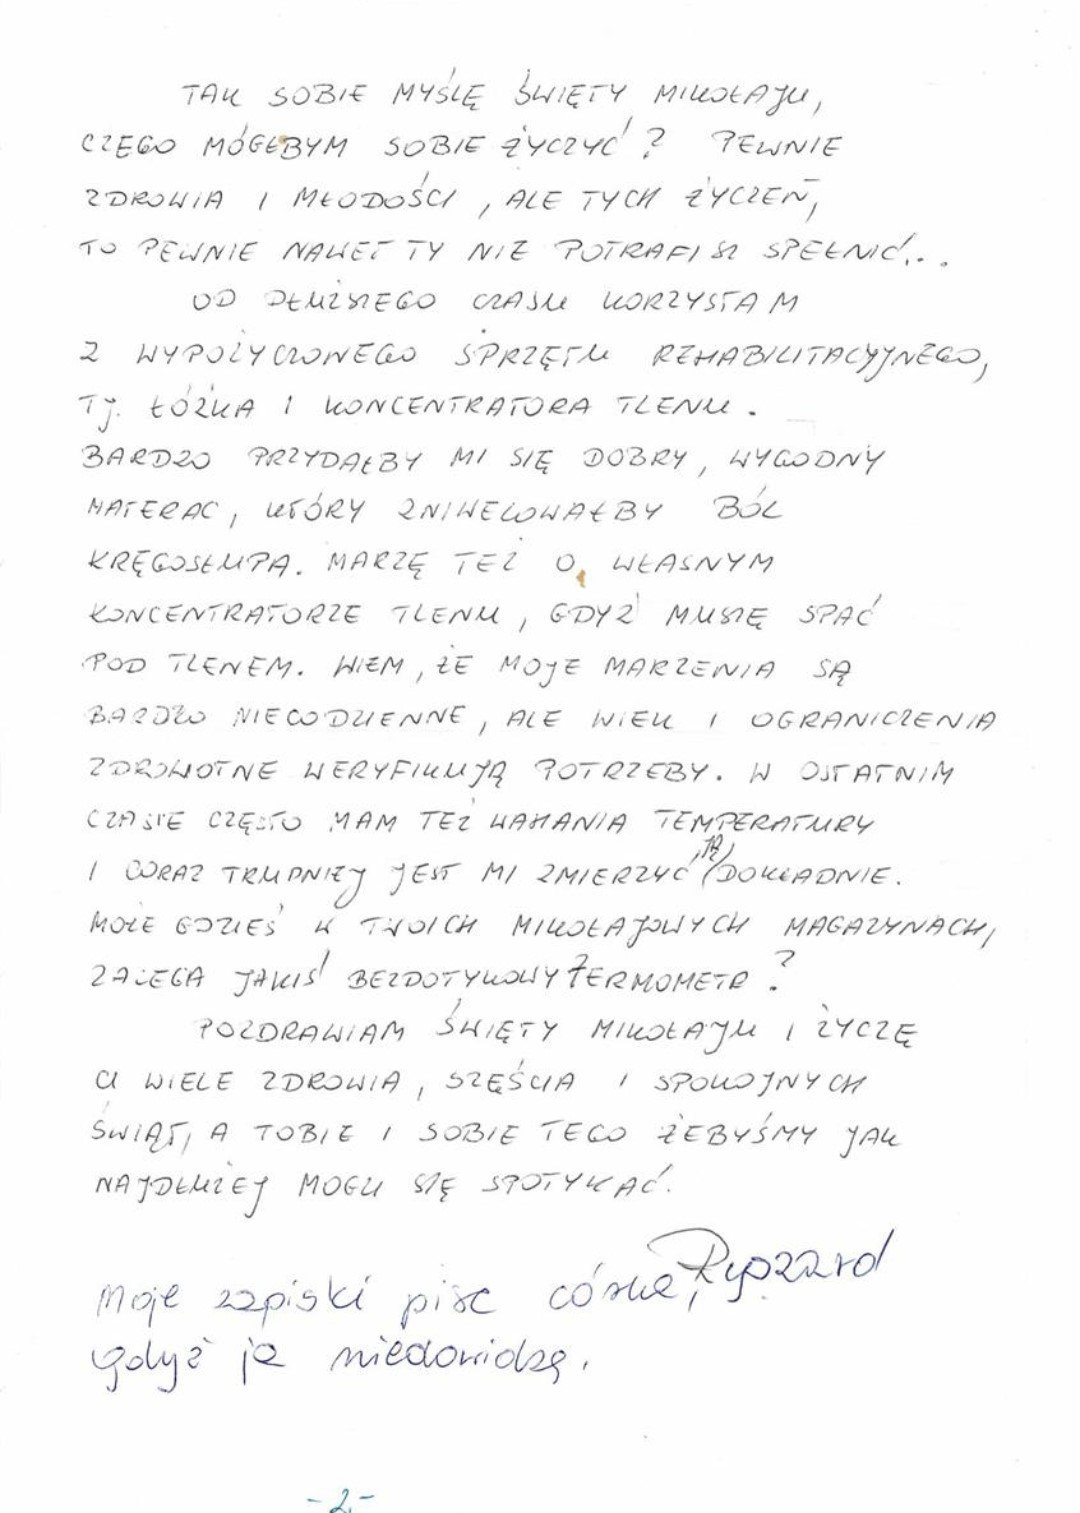 TAK SOBIE MYŚLĘ ŚWIĘTY MIKOŁAJU,
CZEGO MÓGŁBYM SOBIE ŻYCZYĆ? PEWNIE
ZDROWIA I MŁODOŚCI, ALE TYCH ŻYCZEŃ,
TO PEWNIE NAWET TY NIE POTRAFISZ SPEŁNIĆ...
OD DŁUŻSZEGO CZASU KORZYSTAM
Z WYPOŻYCZONEGO SPRZĘTU REHABILITACYJNEGO,
TJ. ŁÓŻKA I KONCENTRATORA TLENU.
BARDZO PRZYDAŁBY MI SIĘ DOBRY, WYGODNY
MATERAC, KTÓRY ZNIWELOWAŁBY BÓL
KRĘGOSŁUPA. MARZĘ TEŻ O WŁASNYM
KONCENTRATORZE TLENU, GDYŻ MUSZĘ SPAĆ
POD TLENEM. WIEM, ŻE MOJE MARZENIA SĄ
BARDZO NIECODZIENNE, ALE WIEK I OGRANICZENIA
ZDROWOTNE WERYFIKUJĄ POTRZEBY. W OSTATNIM
CZASIE CZĘSTO MAM TEŻ WAHANIA TEMPERATURY
I CORAZ TRUDNIEJ JEST MI ZMIERZYĆ JĄ DOKŁADNIE.
MOŻE GDZIEŚ W TWOICH MIKOŁAJOWYCH MAGAZYNACH,
ZALEGA JAKIŚ BEZDOTYKOWY TERMOMETR?
POZDRAWIAM ŚWIĘTY MIKOŁAJU I ŻYCZĘ
CI WIELE ZDROWIA, SZĘŚCIA I SPOKOJNYCH
ŚWIĄT, A TOBIE I SOBIE TEGO ŻEBYŚMY JAK
NAJDŁUŻEJ MOGLI SIĘ SPOTYKAĆ.
Ryszard
Moje zapiski pisze córka,
gdyż ja niedowidzę.
-2-